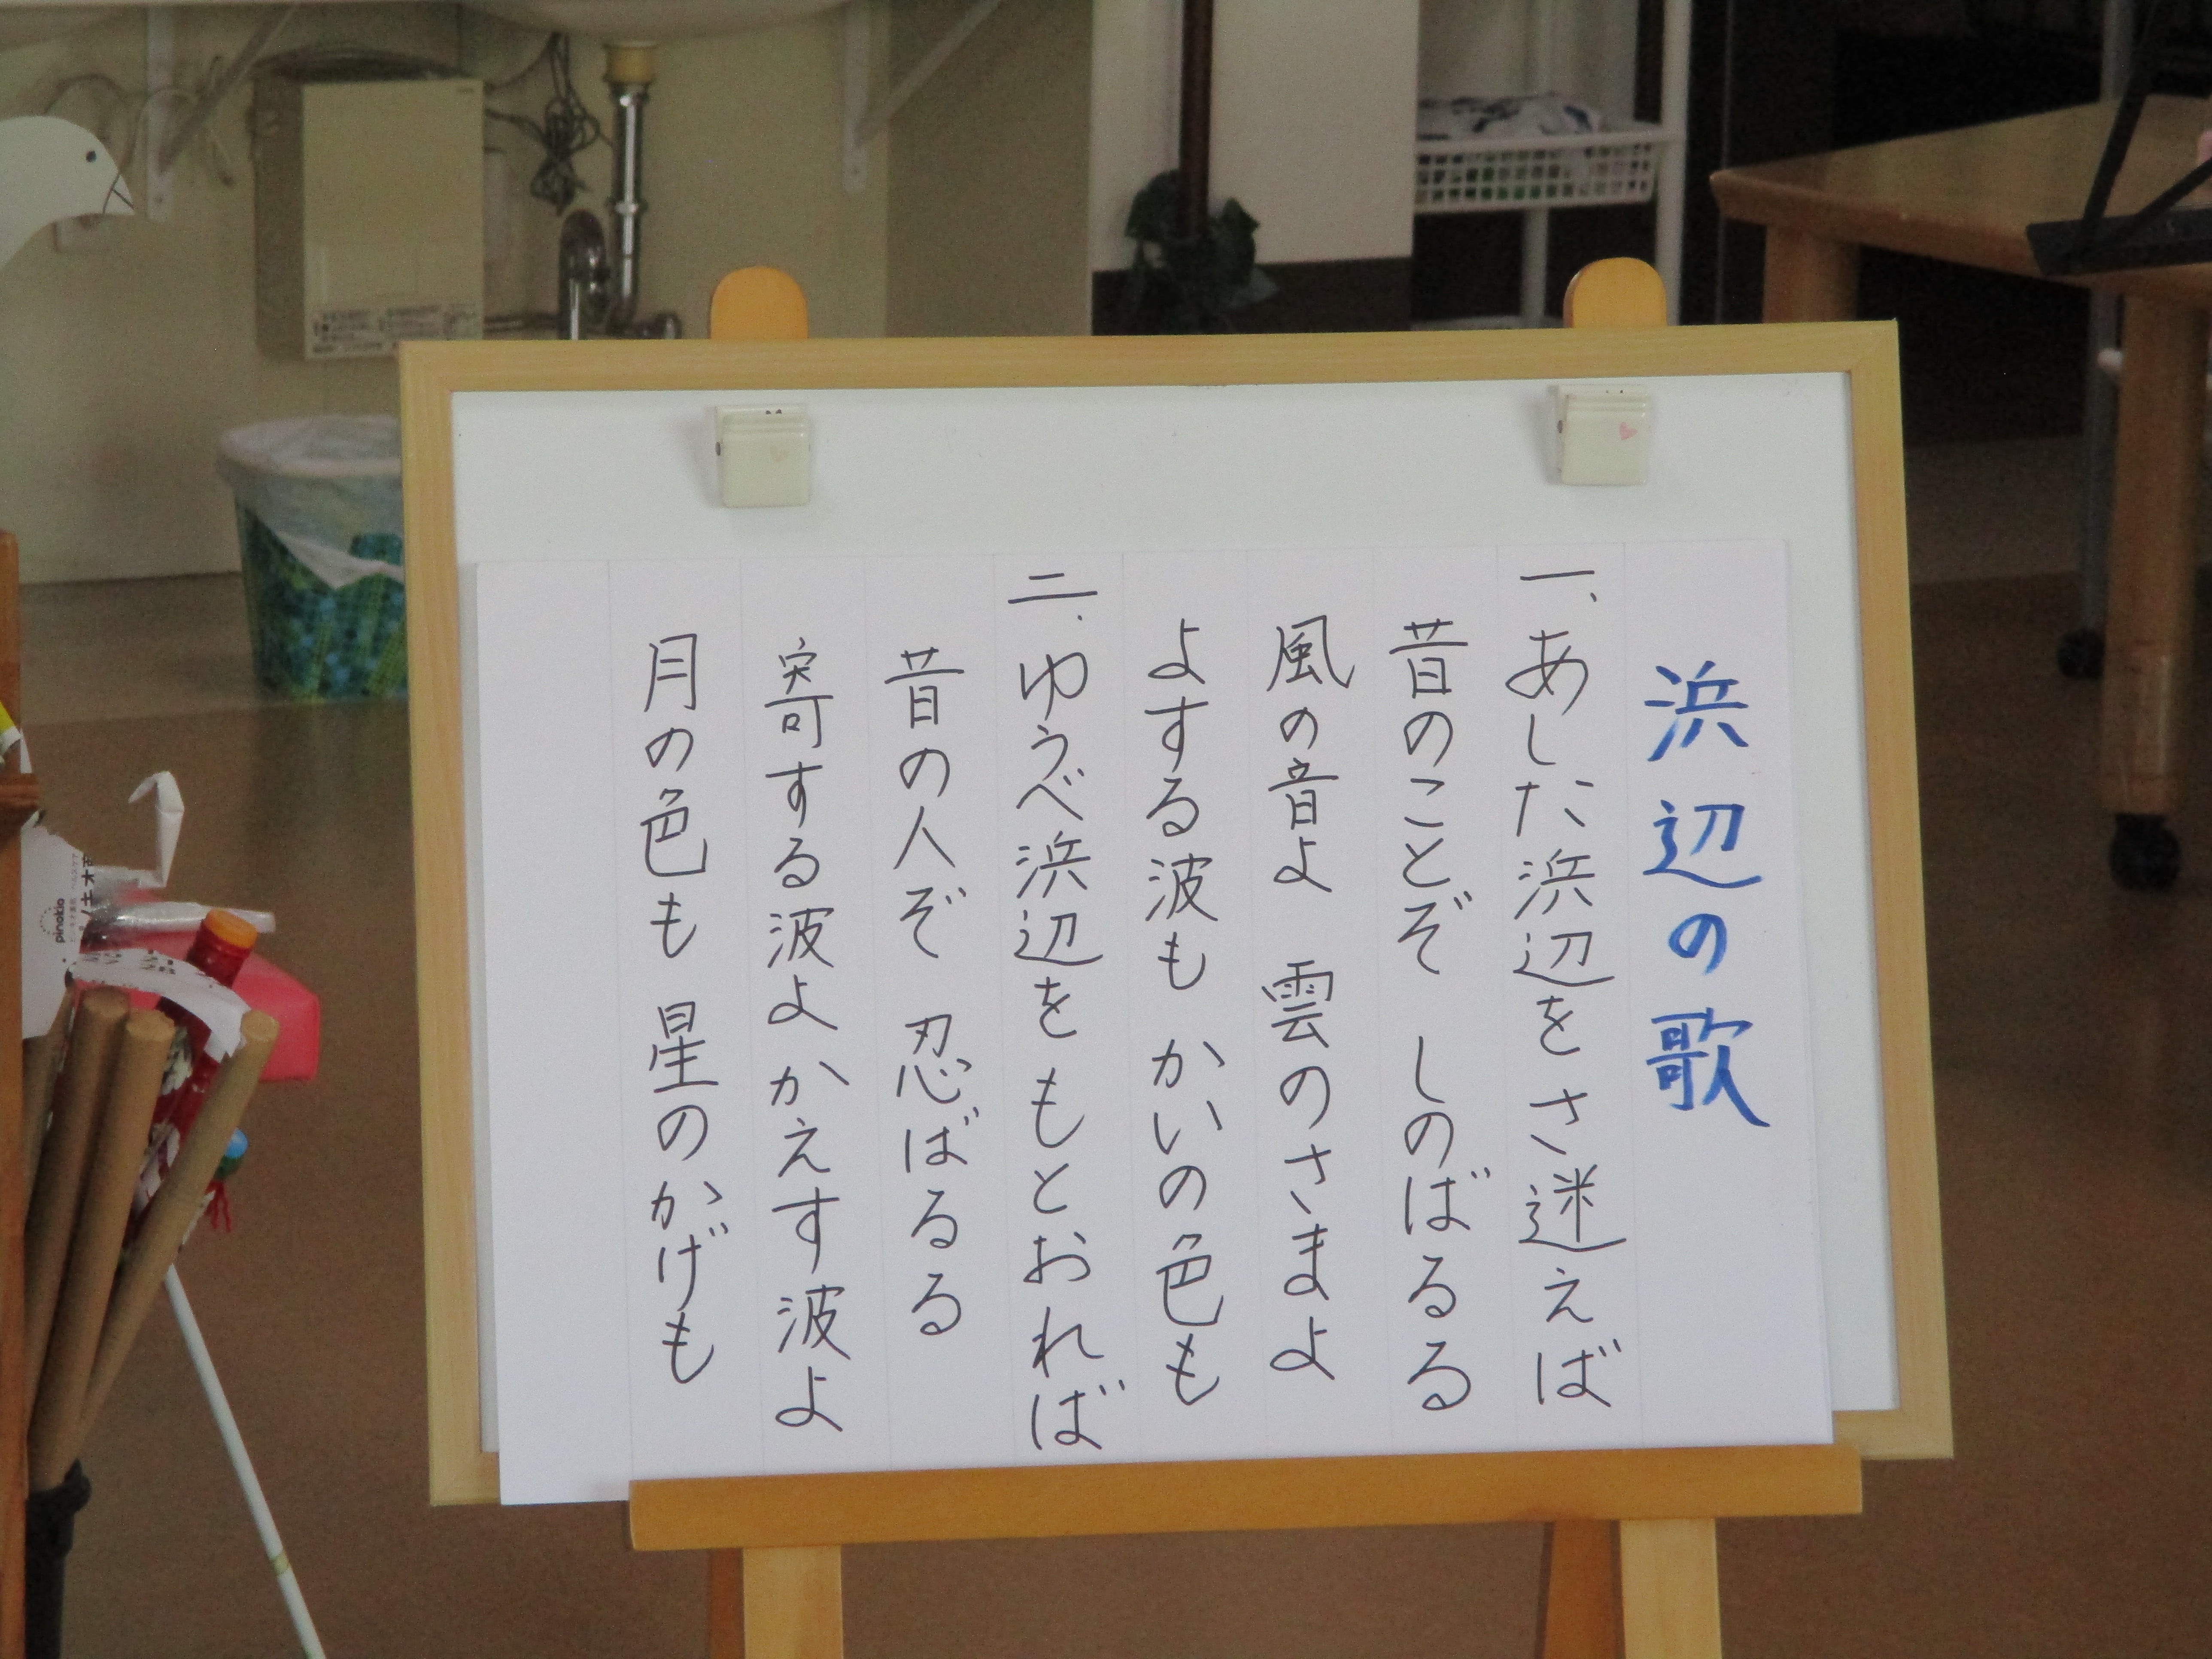 浜辺の歌
一、あした浜辺をさ迷えば
昔のことぞ しのばるる
風の音よ 雲のさまよ
よする波も かいの色も
二、ゆうべ浜辺を もとおれば
昔の人ぞ 忍ばるる
寄する波よ かえす波よ
月の色も 星のかげも
pinokio